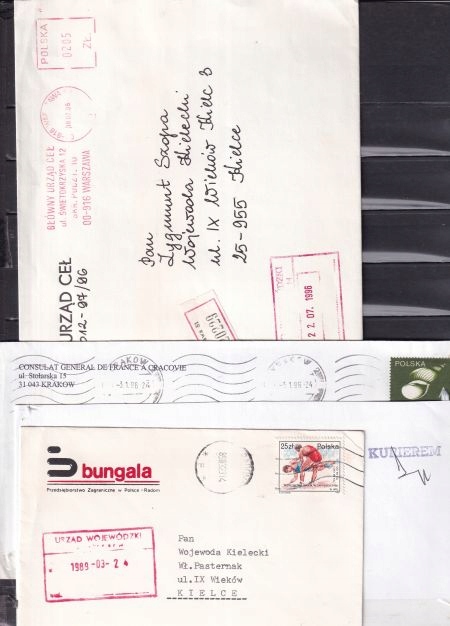 POLSKA
0205
ZŁ
GŁÓWNY URZĄD CEŁ
ul. ŚWIĘTOKRZYSKA 12
00-916 WARSZAWA
URZĄD CEŁ
012-97/96
Pan
Zygmunt Szopa
Wojewoda Kielecki
ul. IX Wieków Kielc 3
25-955 Kielce
22.07.1996
CONSULAT GENERAL DE FRANCE A CRACOVIE
ul. Stolarska 15
31 043 KRAKOW
KRAKÓW 2
-3.1.96-24
KRAKÓW 2
-3.1.96-24
POLSKA
90
KURIEREM
bungala
Przedsiębiorstwo Zagraniczne w Polsce - Radom
25zł
Polska
URZĄD WOJEWÓDZKI
1989-03-24
Pan
Wojewoda Kielecki
Wł.Pasternak
ul.IX Wieków
KIELCE